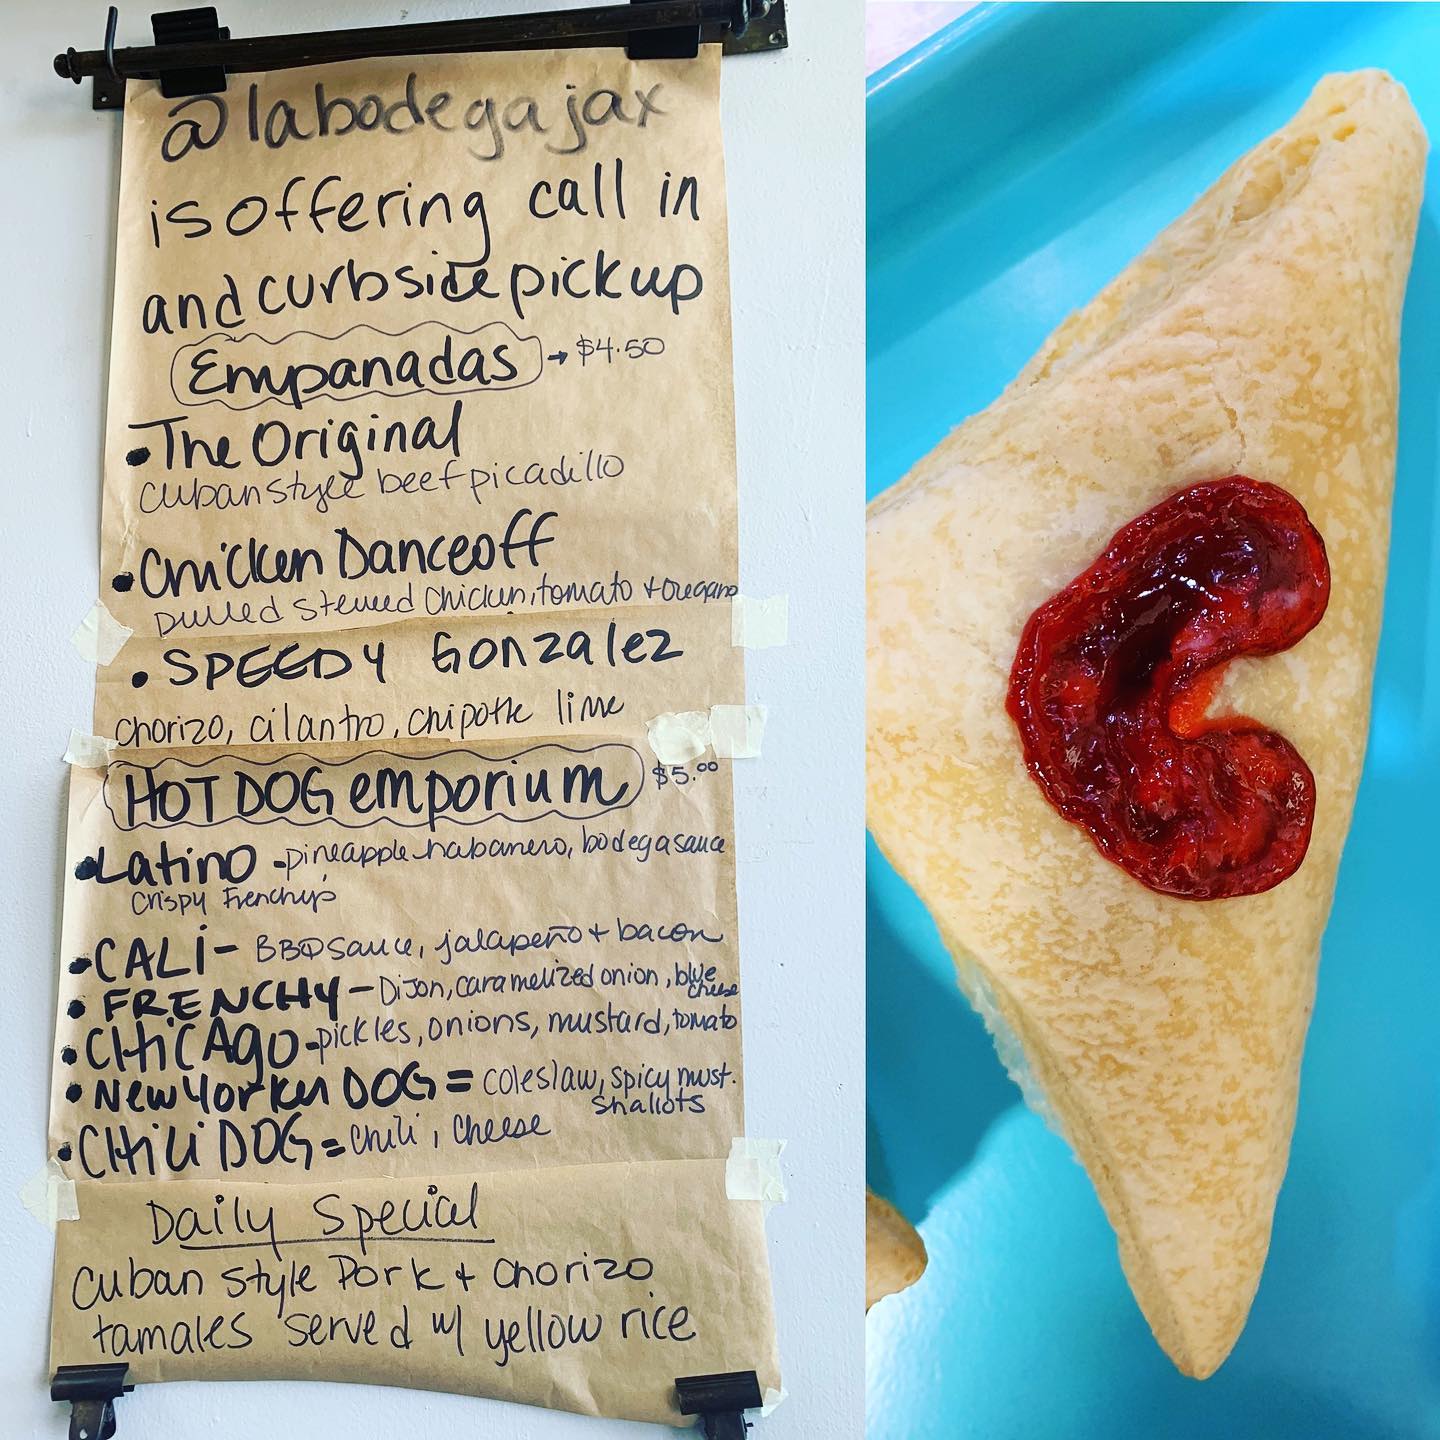 @labodegajax
is offering call in
and curbside pickup
Empanadas → $4.50
• The Original
Cuban style beef picadillo
• Chicken Danceoff
Pulled Stewed Chicken, tomato + oregano
• SPEEDY GONzalez
chorizo, cilantro, chipotle lime
HOT DOG emporium $5.00
• Latino - pineapple habanero, bodega sauce
Crispy Frenchy's
• CALi - BBQ sauce, jalapeño + bacon
• FRENCHY - Dijon, caramelized onion, blue cheese
• CHiCAgo - pickles, onions, mustard, tomato
• New Yorker DOG = coleslaw, spicy must.
Shallots
• CHiLi DOG = chili, cheese
Daily Special
Cuban Style Pork + Chorizo
tamales served w/ yellow rice